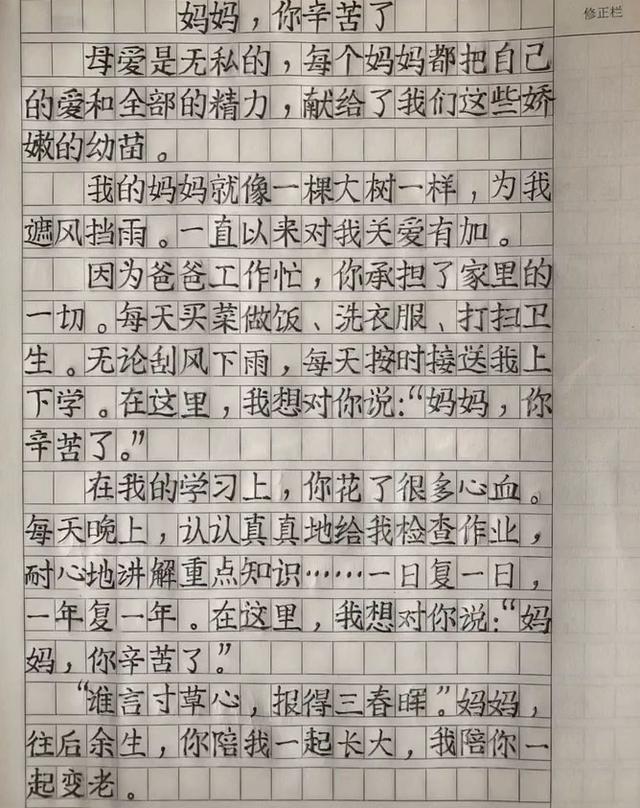 修正栏
妈妈，你辛苦了
母爱是无私的，每个妈妈都把自己
的爱和全部的精力，献给了我们这些娇
嫩的幼苗。
我的妈妈就像一棵大树一样，为我
遮风挡雨。一直以来对我关爱有加。
因为爸爸工作忙，你承担了家里的
一切。每天买菜做饭、洗衣服、打扫卫
生。无论刮风下雨，每天按时接送我上
下学。在这里，我想对你说：“妈妈，你
辛苦了。”
在我的学习上，你花了很多心血。
每天晚上，认认真真地给我检查作业，
耐心地讲解重点知识……一日复一日，
一年复一年。在这里，我想对你说：“妈
妈，你辛苦了。”
“谁言寸草心，报得三春晖。”妈妈，
往后余生，你陪我一起长大，我陪你一
起变老。